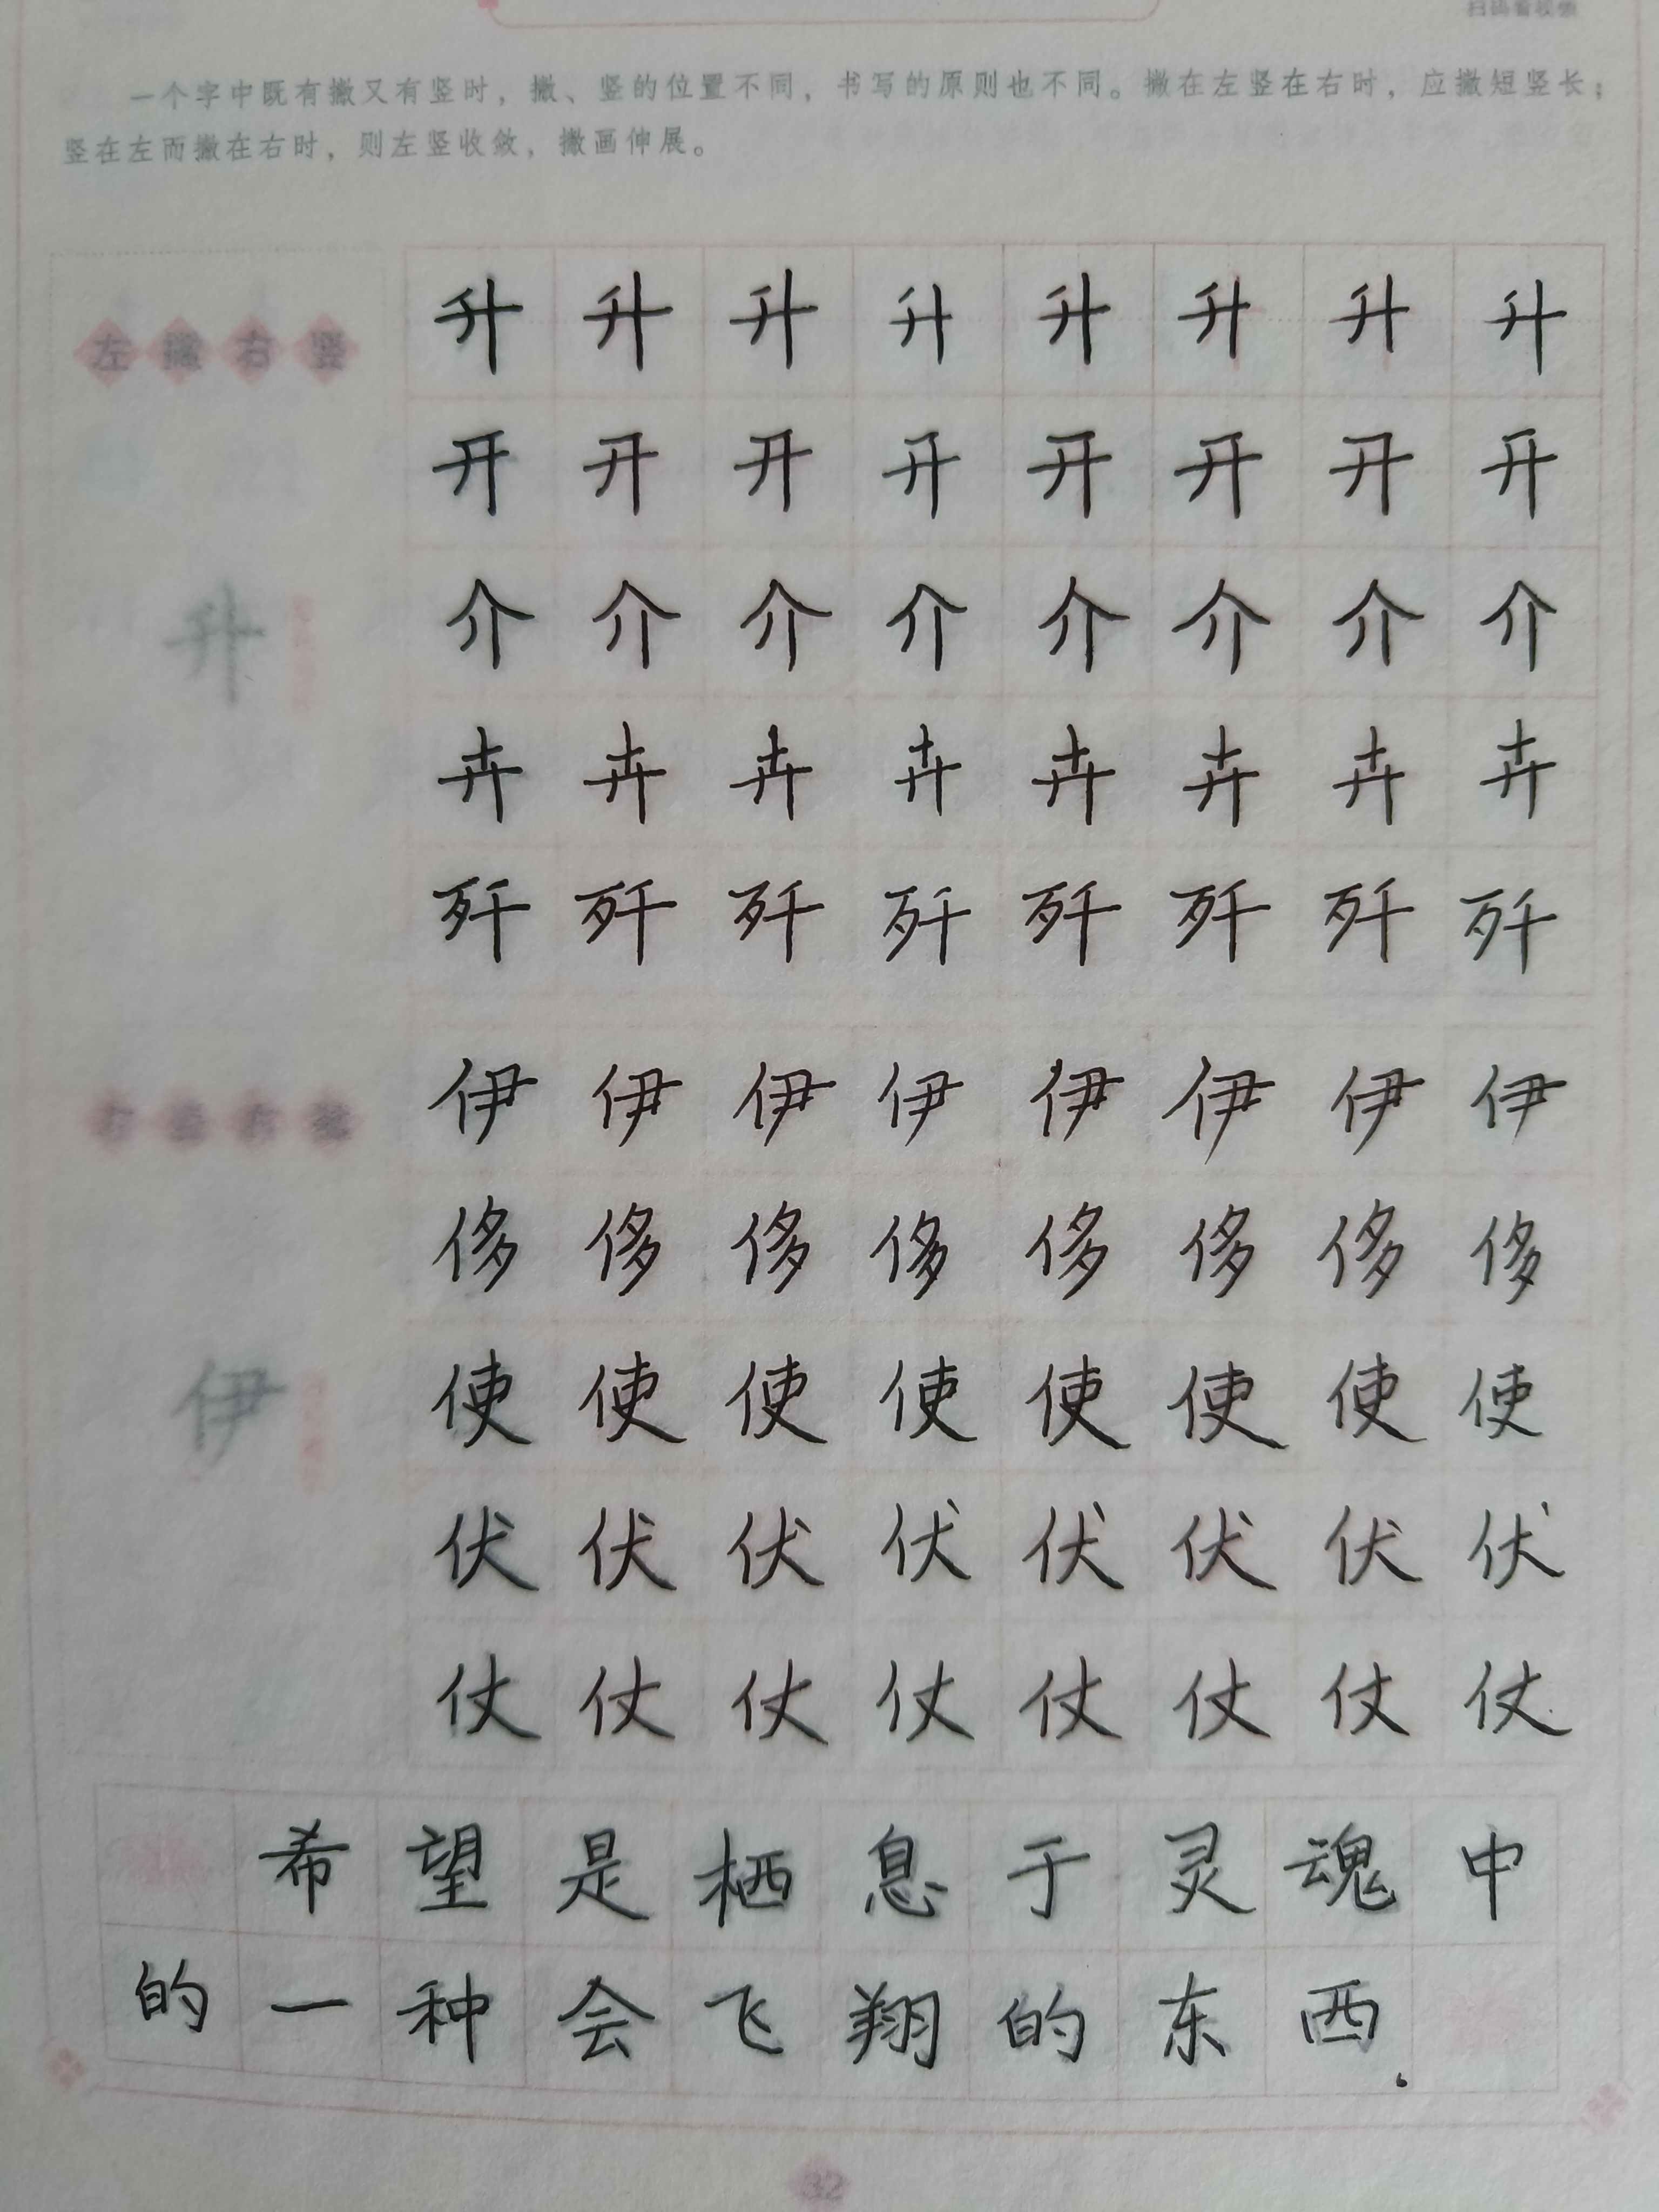 扫码看视频
一个字中既有撇又有竖时，撇、竖的位置不同，书写的原则也不同。撇在左竖在右时，应撇短竖长；
竖在左而撇在右时，则左竖收敛，撇画伸展。
左撇右竖
升
升升升升升升升升
开开开开开开开开
介介介介介介介介
卉卉卉卉卉卉卉卉
歼歼歼歼歼歼歼歼
伊
伊伊伊伊伊伊伊伊
侈侈侈侈侈侈侈侈
使使使使使使使使
伏伏伏伏伏伏伏伏
仗仗仗仗仗仗仗仗
希望是栖息于灵魂中
的一种会飞翔的东西.
32